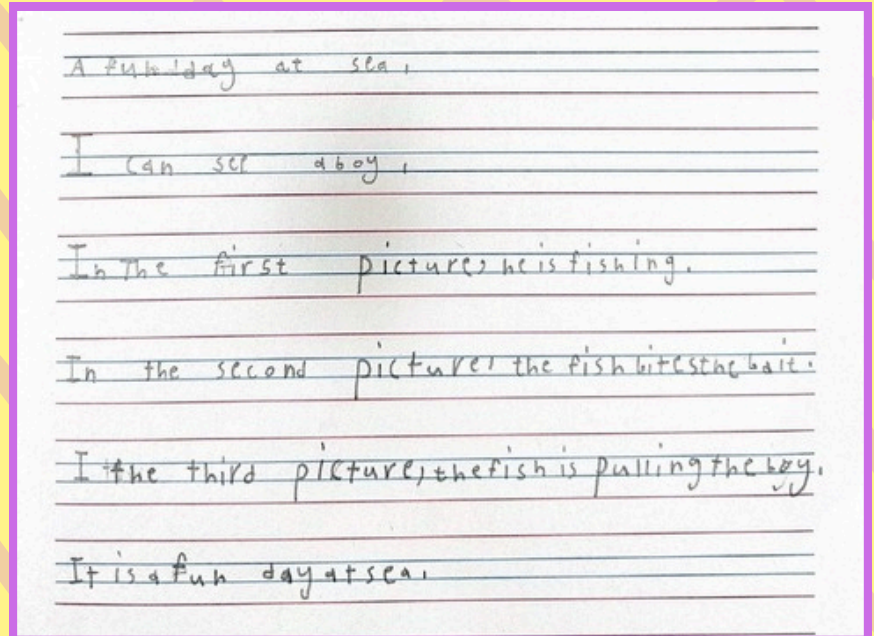 A fun day at sea.
I can see a boy.
In The first picture, he is fishing.
In the second picture, the fish bites the bait.
I the third picture, the fish is pulling the boy.
It is a fun day at sea.